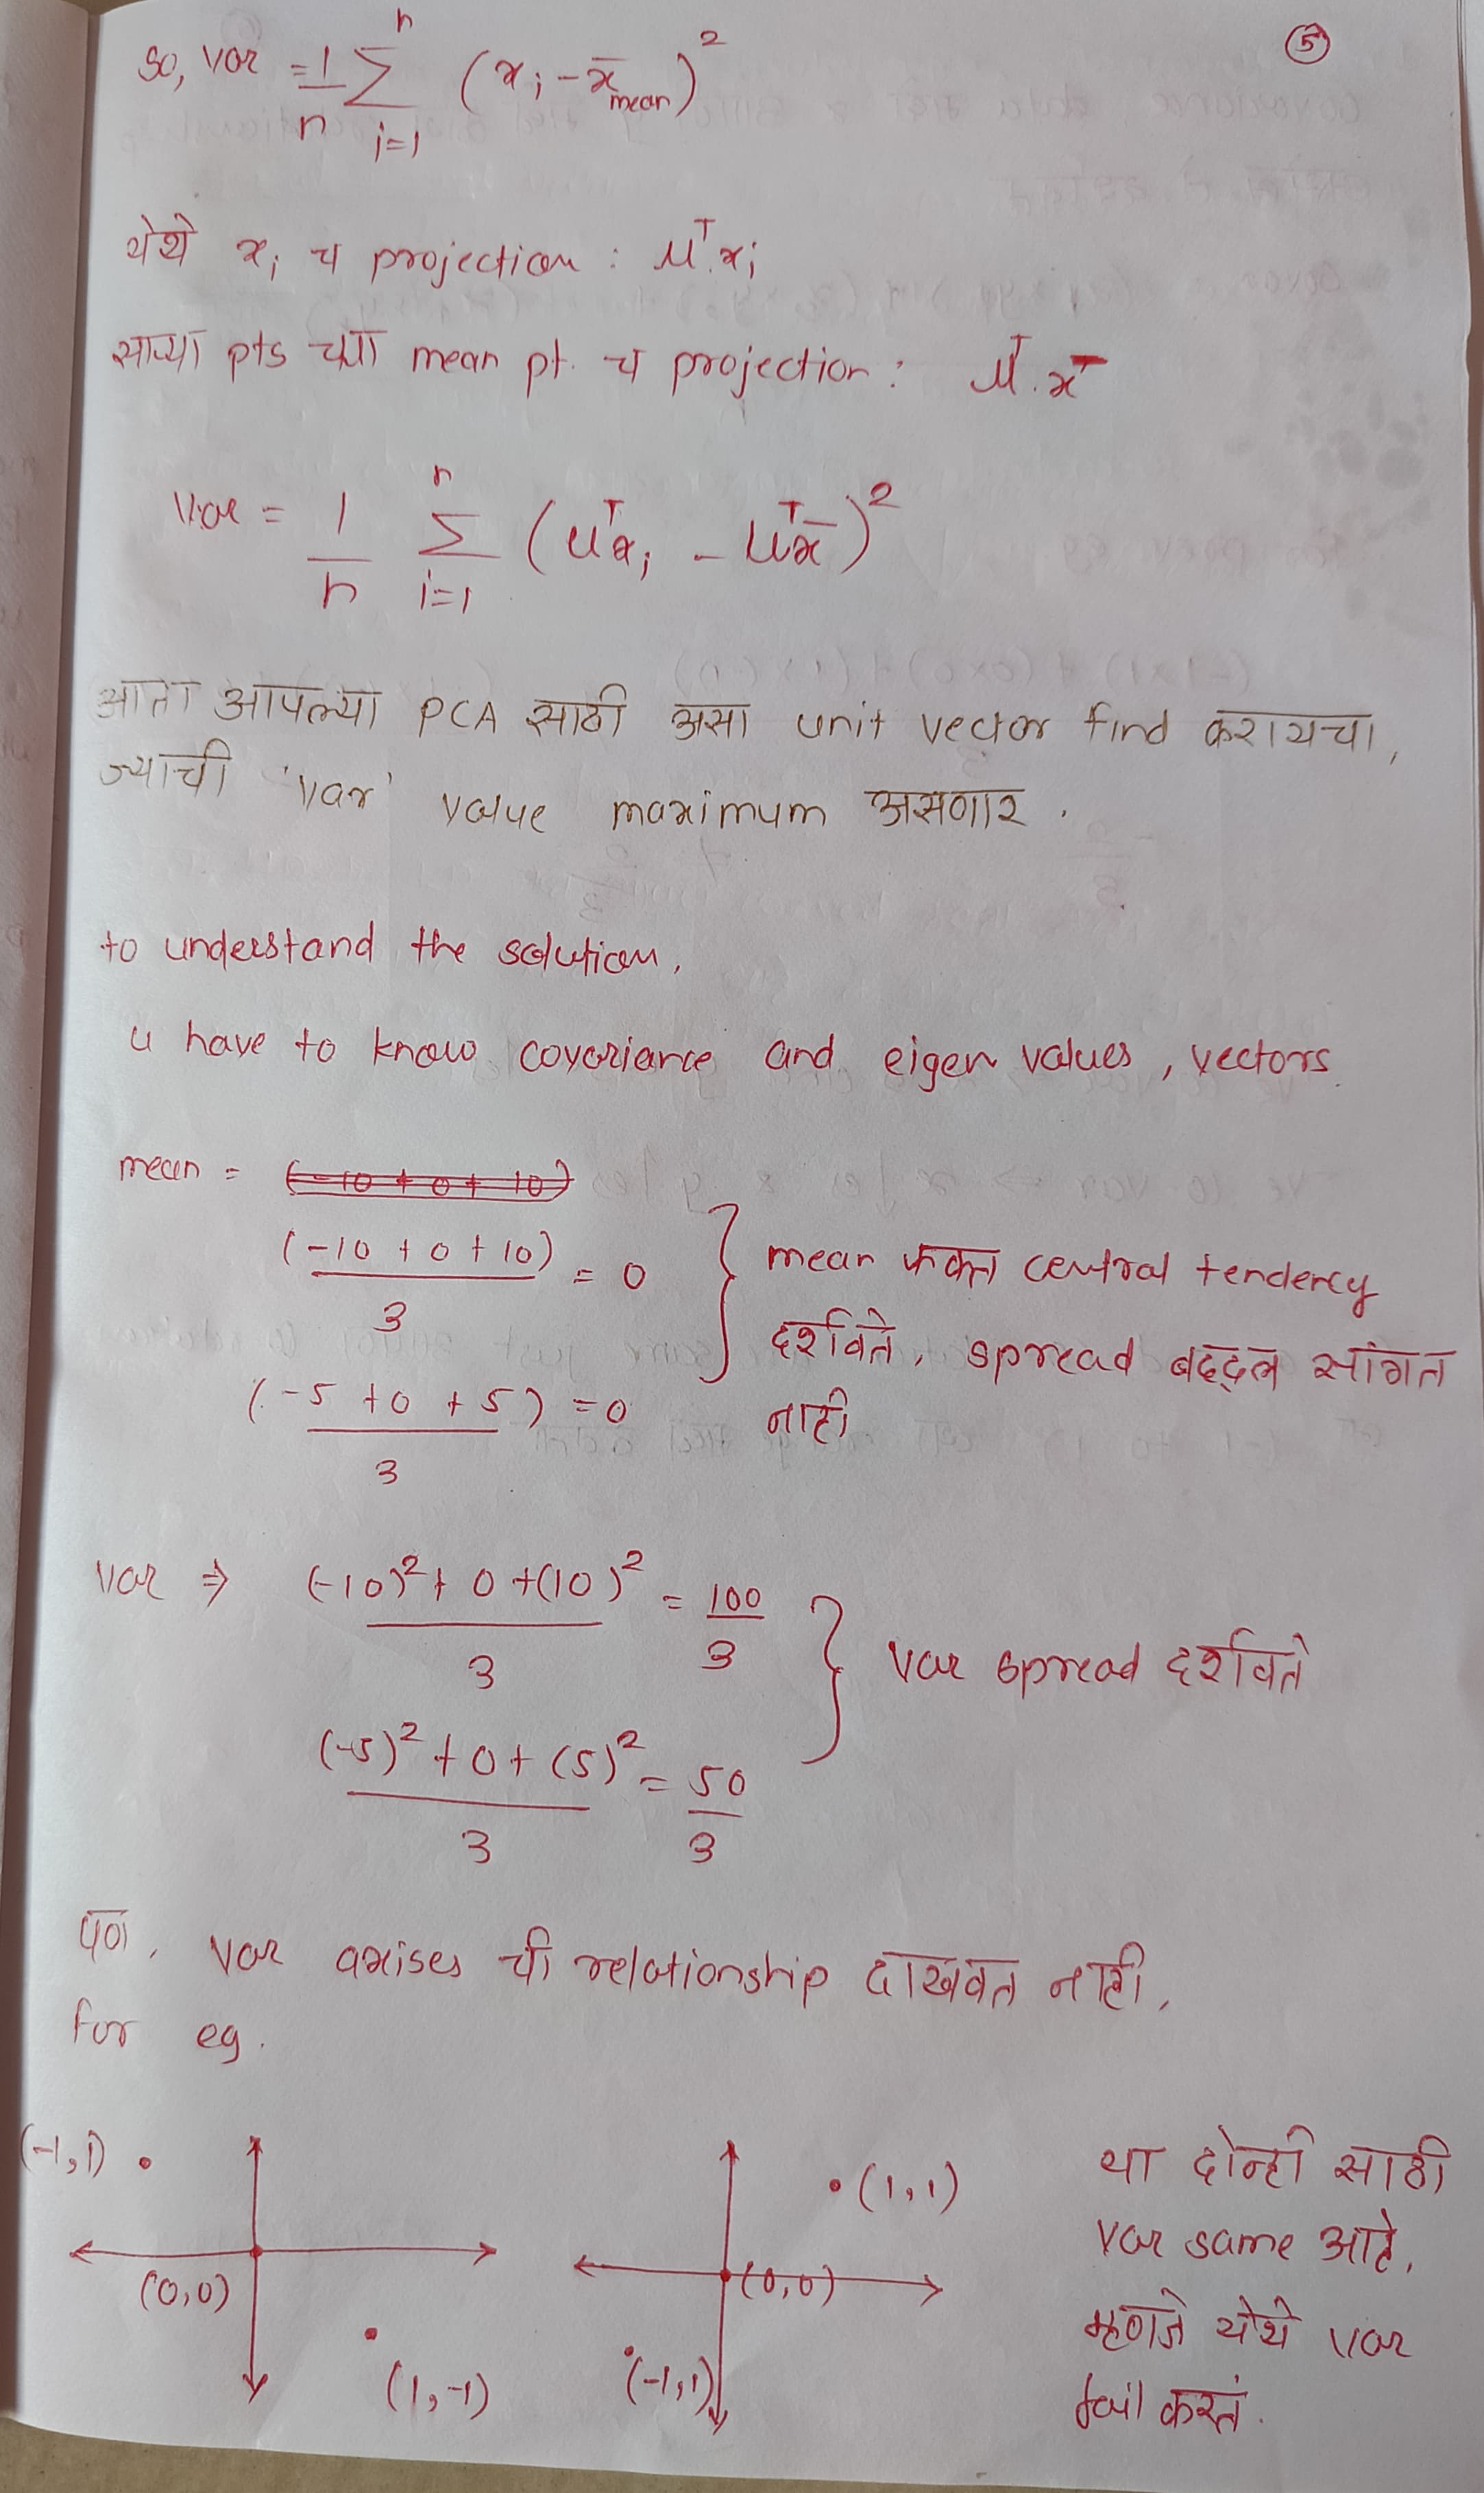 ⑤
so, var = 1/n Σ_{i=1}^{n} (x_i - x̄_mean)²
येथे x_i च projection : u^T.x_i
साऱ्या pts च्या mean pt. च projection : u^T.x̄
Var = 1/n Σ_{i=1}^{n} (u^T x_i - u^T x̄)²
आता आपल्या PCA साठी असा unit vector find करायचा,
ज्याची 'var' value maximum असणार .
to understand the solution,
u have to know covariance and eigen values, vectors
mean = (-10 + 0 + 10)
(-10 + 0 + 10)/3 = 0
(-5 + 0 + 5)/3 = 0
mean फक्त central tendency
दर्शविते, spread बद्दल सांगत
नाही
var ⇒ (-10)² + 0 + (10)² / 3 = 100/3
(-5)² + 0 + (5)² / 3 = 50/3
var spread दर्शविते
पण, var axises ची relationship दाखवत नाही,
for eg.
(-1,1)
(0,0)
(1,-1)
(1,1)
(0,0)
(-1,1)
या दोन्ही साठी
var same आहे,
म्हणजे येथे var
fail करतं.